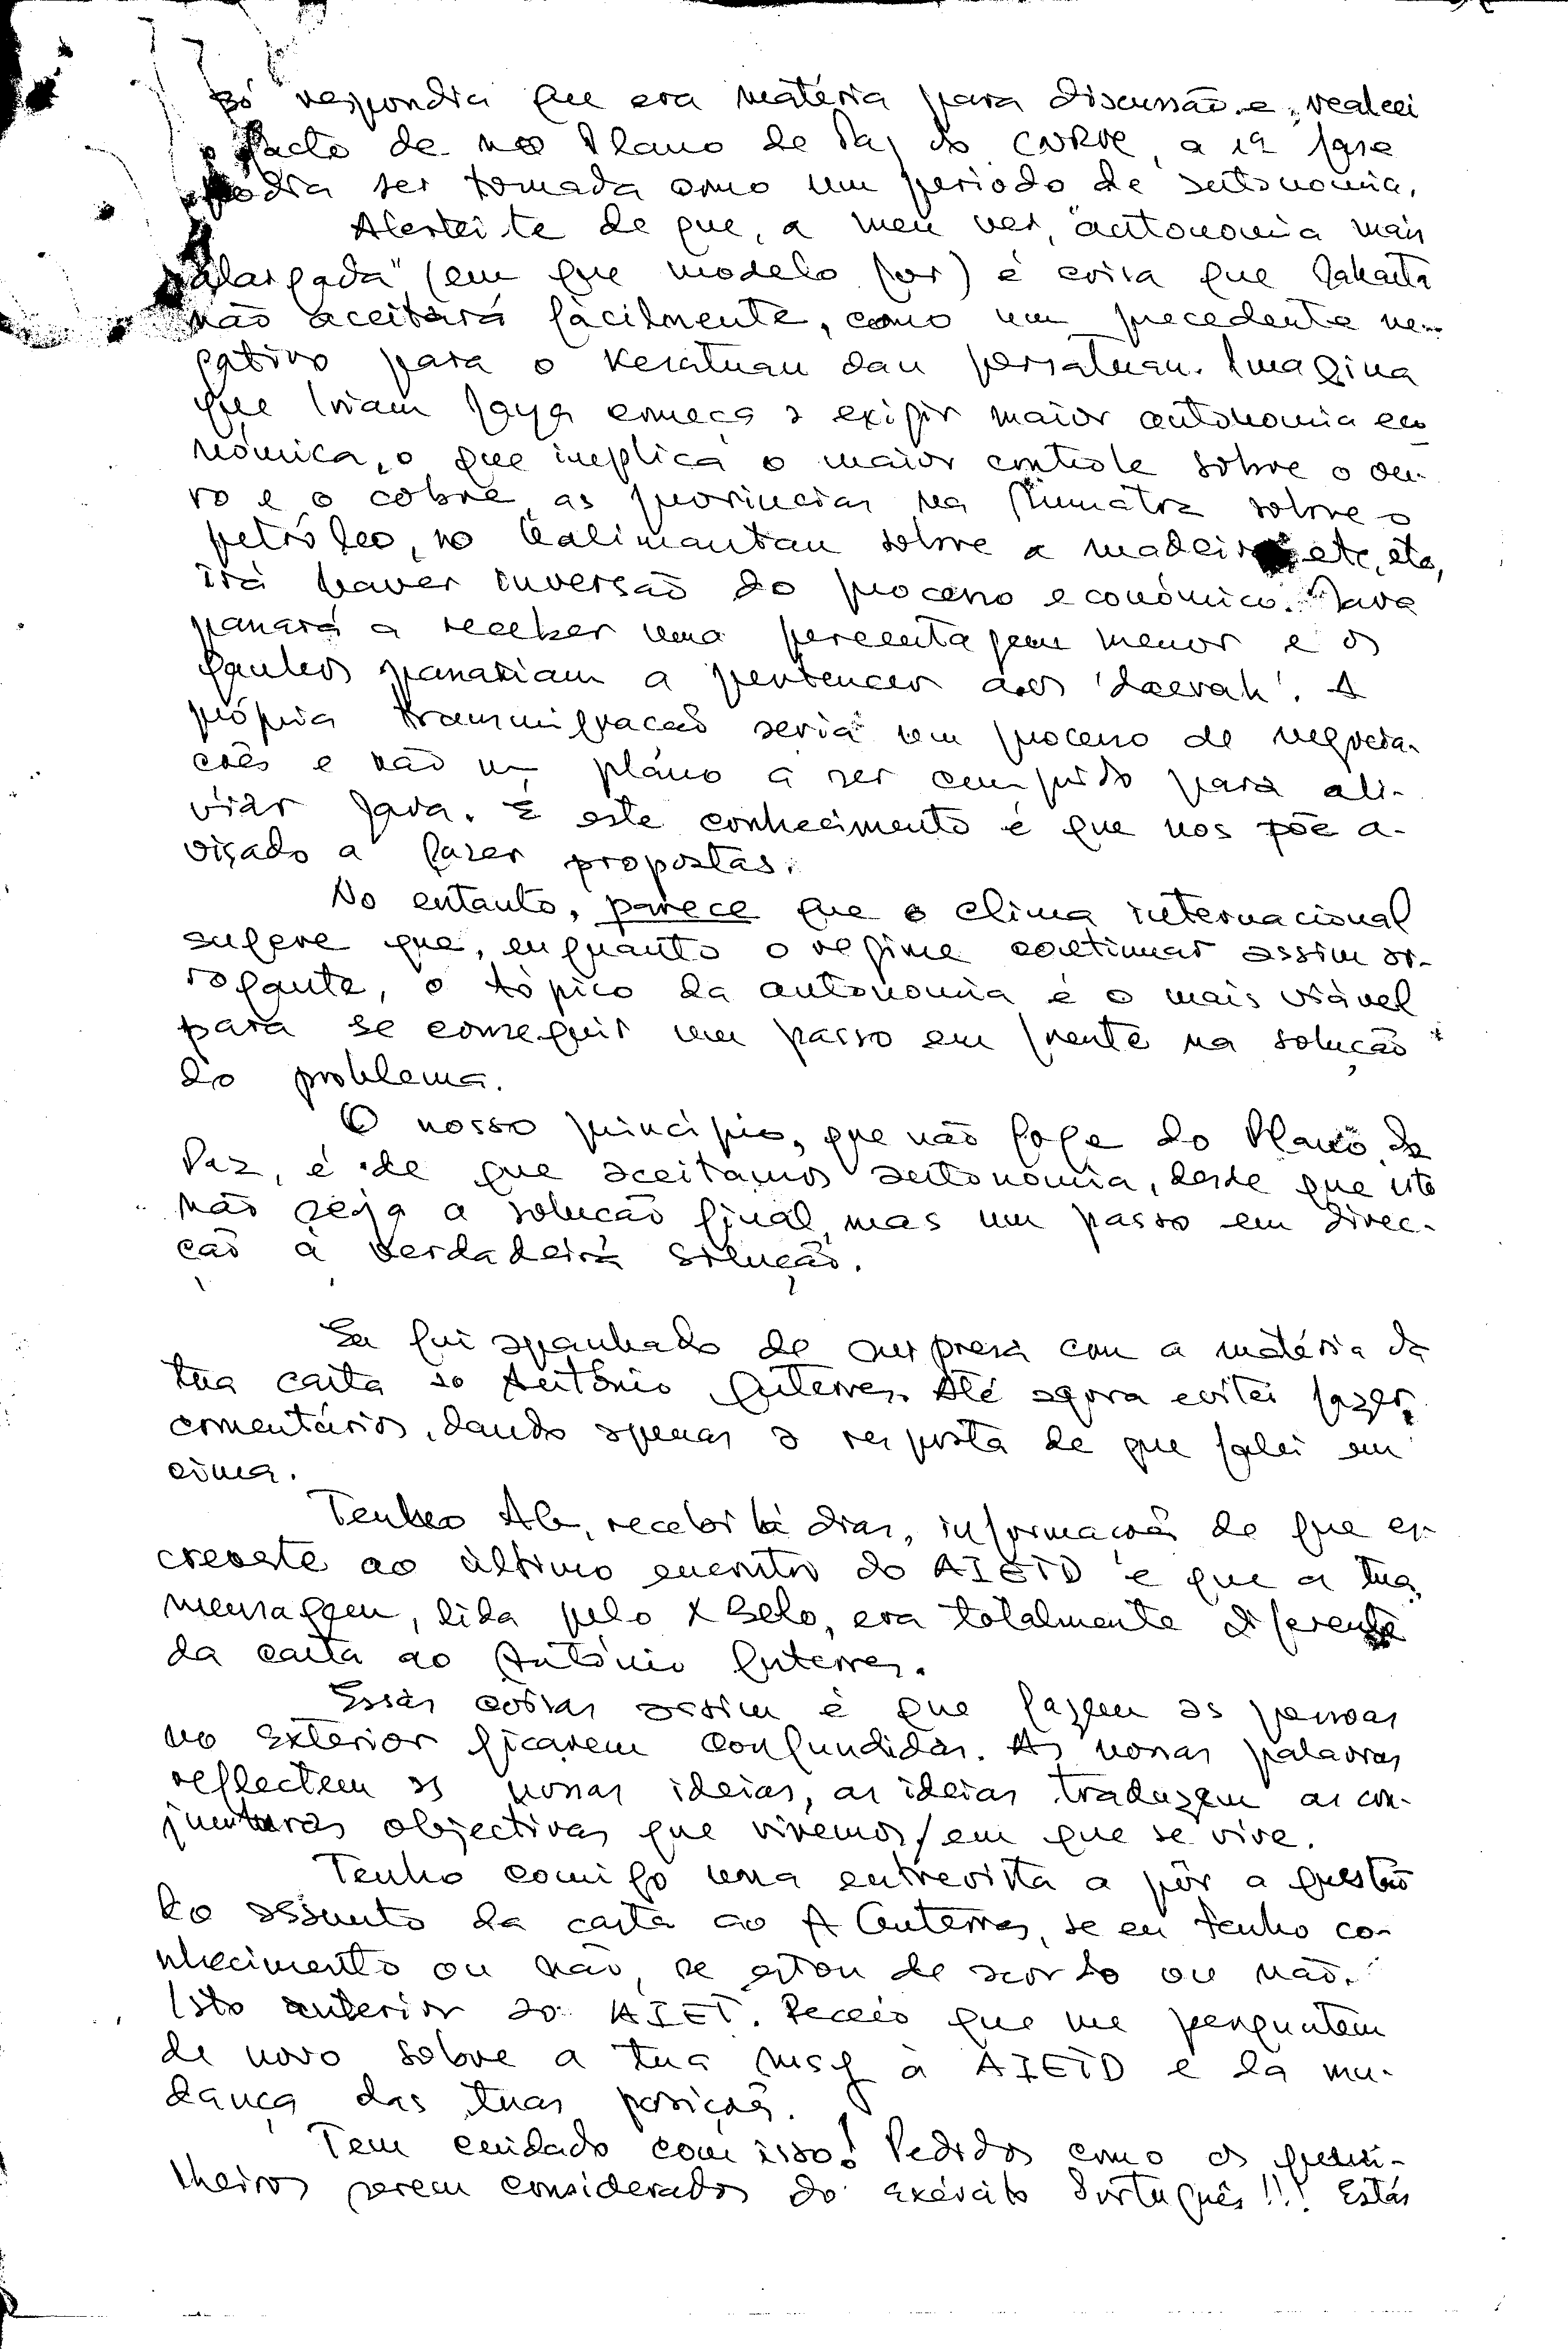 só respondia que era matéria para discussão e, realcei
facto de no Plano de Paz do CNRM, a 1ª fase
podia ser tomada como um período de autonomia.
Alertei-te de que, a meu ver, "autonomia mais
alargada" (em que modelo for) é coisa que Jakarta
não aceitará fàcilmente, como um precedente ne-
gativo para o kesatuan dan persatuan. Imagina
que Irian Jaya começa a exigir maior autonomia eco
nómica, o que implica o maior controle sobre o ou-
ro e o cobre, as províncias na Sumatra sobre o
petróleo, no Kalimantan sobre a madeira etc, etc,
irá haver inversão do processo económico. Java
passará a receber uma percentagem menor e os
ganhos passariam a pertencer aos 'daerah'. A
própria transmigração seria um processo de negocia-
ções e não um plano a ser cumprido para ali-
viar Java. É este conhecimento é que nos põe a-
visado a fazer propostas.
No entanto, parece que o clima internacional
sugere que, enquanto o regime continuar assim ar-
rogante, o tópico da autonomia é o mais viável
para se conseguir um passo em frente na solução
do problema.
O nosso princípio, que não foge do Plano de
Paz, é de que aceitamos autonomia, desde que isto
não seja a solução final, mas um passo em direc-
ção à verdadeira solução.
Eu fui apanhado de surpresa com a matéria da
tua carta ao António Guterres. Até agora evitei fazer
comentários, dando apenas a resposta de que falei em
cima.
Tenho Ab, recebi há dias, informações de que es-
creveste ao último encontro do AIETD e que a tua
mensagem, lida pelo X Belo, era totalmente diferente
da carta ao António Guterres.
Essas coisas assim é que fazem as pessoas
no exterior ficarem confundidas. As nossas palavras
reflectem as nossas ideias, as ideias traduzem as con-
junturas objectivas que vivemos/em que se vive.
Tenho comigo uma entrevista a pôr a questão
do assunto da carta ao A Guterres, se eu tenho co-
nhecimento ou não, se estou de acordo ou não.
Isto anterior ao AIET. Receio que me perguntem
de novo sobre a tua msg à AIETD e da mu-
dança das tuas posições.
Tem cuidado com isso! Pedidos como os guerri-
lheiros serem considerados do exército Português!!! Estás